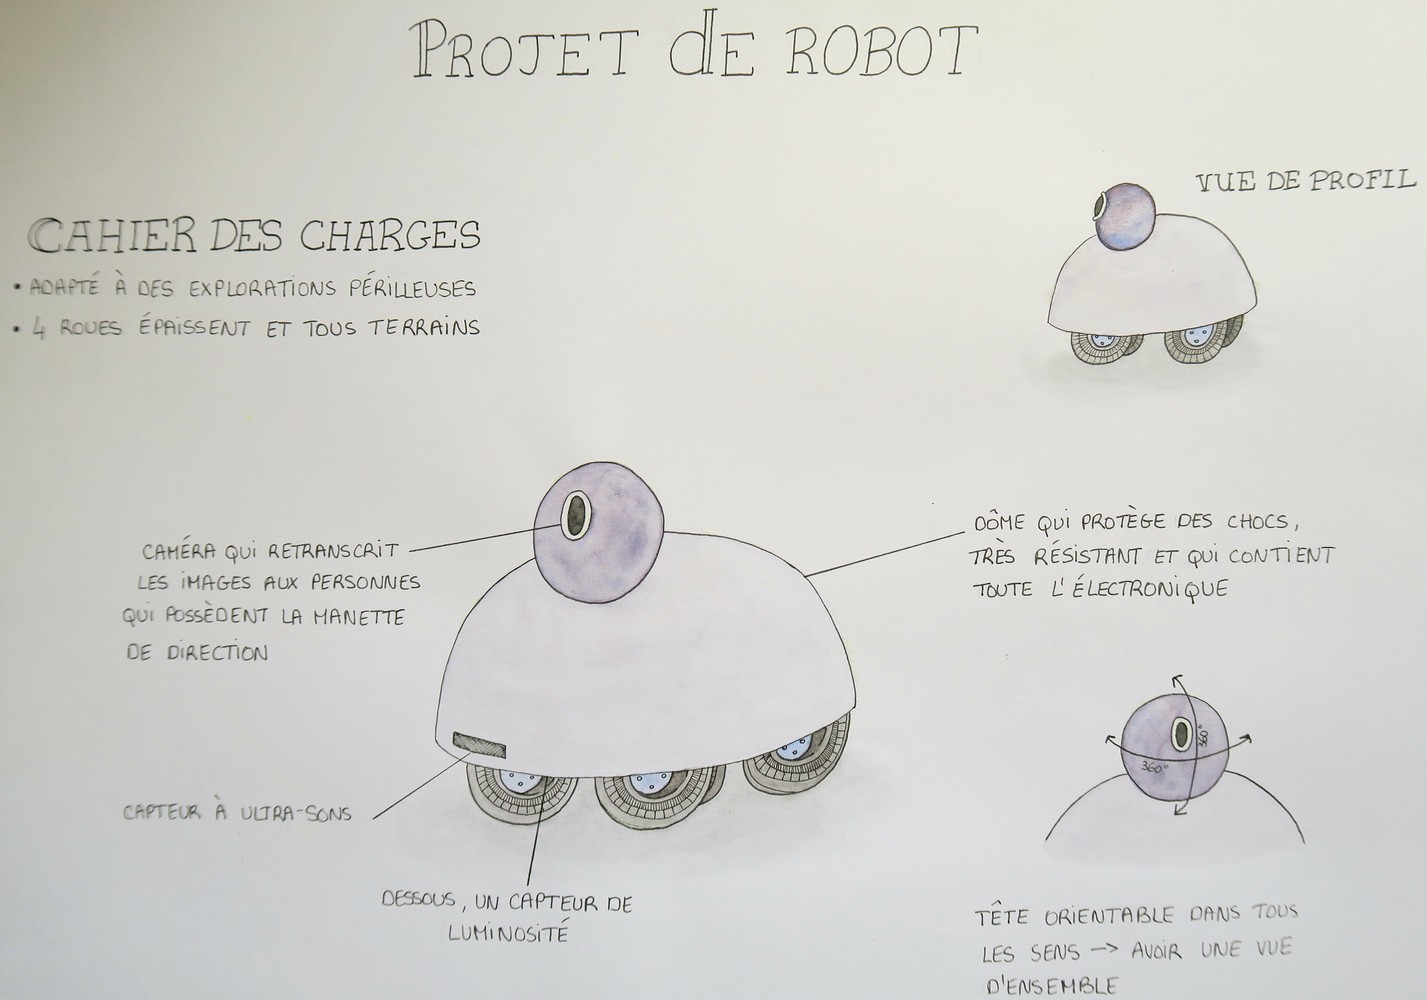 PROJET de ROBOT
VUE DE PROFIL
CAHIER DES CHARGES
• ADAPTÉ À DES EXPLORATIONS PÉRILLEUSES
• 4 ROUES ÉPAISSENT ET TOUS TERRAINS
CAMÉRA QUI RETRANSCRIT
LES IMAGES AUX PERSONNES
QUI POSSÈDENT LA MANETTE
DE DIRECTION
DÔME QUI PROTÈGE DES CHOCS,
TRÈS RÉSISTANT ET QUI CONTIENT
TOUTE L'ÉLECTRONIQUE
360°
360°
CAPTEUR À ULTRA-SONS
DESSOUS, UN CAPTEUR DE
LUMINOSITÉ
TÊTE ORIENTABLE DANS TOUS
LES SENS → AVOIR UNE VUE
D'ENSEMBLE